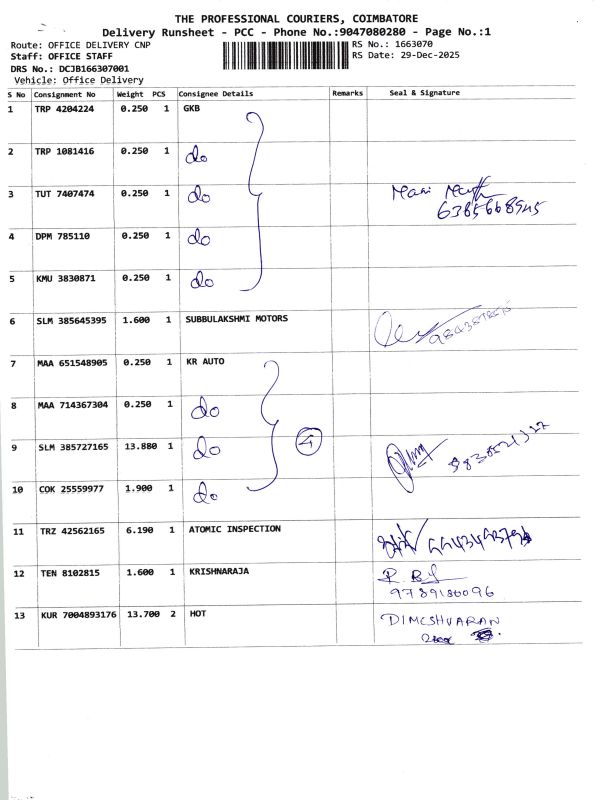 THE PROFESSIONAL COURIERS, COIMBATORE
Delivery Runsheet - PCC - Phone No.:9047080280 - Page No.:1
Route: OFFICE DELIVERY CNP
RS No.: 1663070
Staff: OFFICE STAFF
RS Date: 29-Dec-2025
DRS No.: DCJB166307001
Vehicle: Office Delivery
S No Consignment No Weight PCS Consignee Details Remarks Seal & Signature
1 TRP 4204224 0.250 1 GKB
2 TRP 1081416 0.250 1 do
3 TUT 7407474 0.250 1 do
6385668945
4 DPM 785110 0.250 1 do
5 KMU 3830871 0.250 1 do
6 SLM 385645395 1.600 1 SUBBULAKSHMI MOTORS
7 MAA 651548905 0.250 1 KR AUTO
8 MAA 714367304 0.250 1 do
9 SLM 385727165 13.880 1 do 4
10 COK 25559977 1.900 1 do
11 TRZ 42562165 6.190 1 ATOMIC INSPECTION
12 TEN 8102815 1.600 1 KRISHNARAJA
9789180096
13 KUR 7004893176 13.700 2 HOT DINESHVARAN